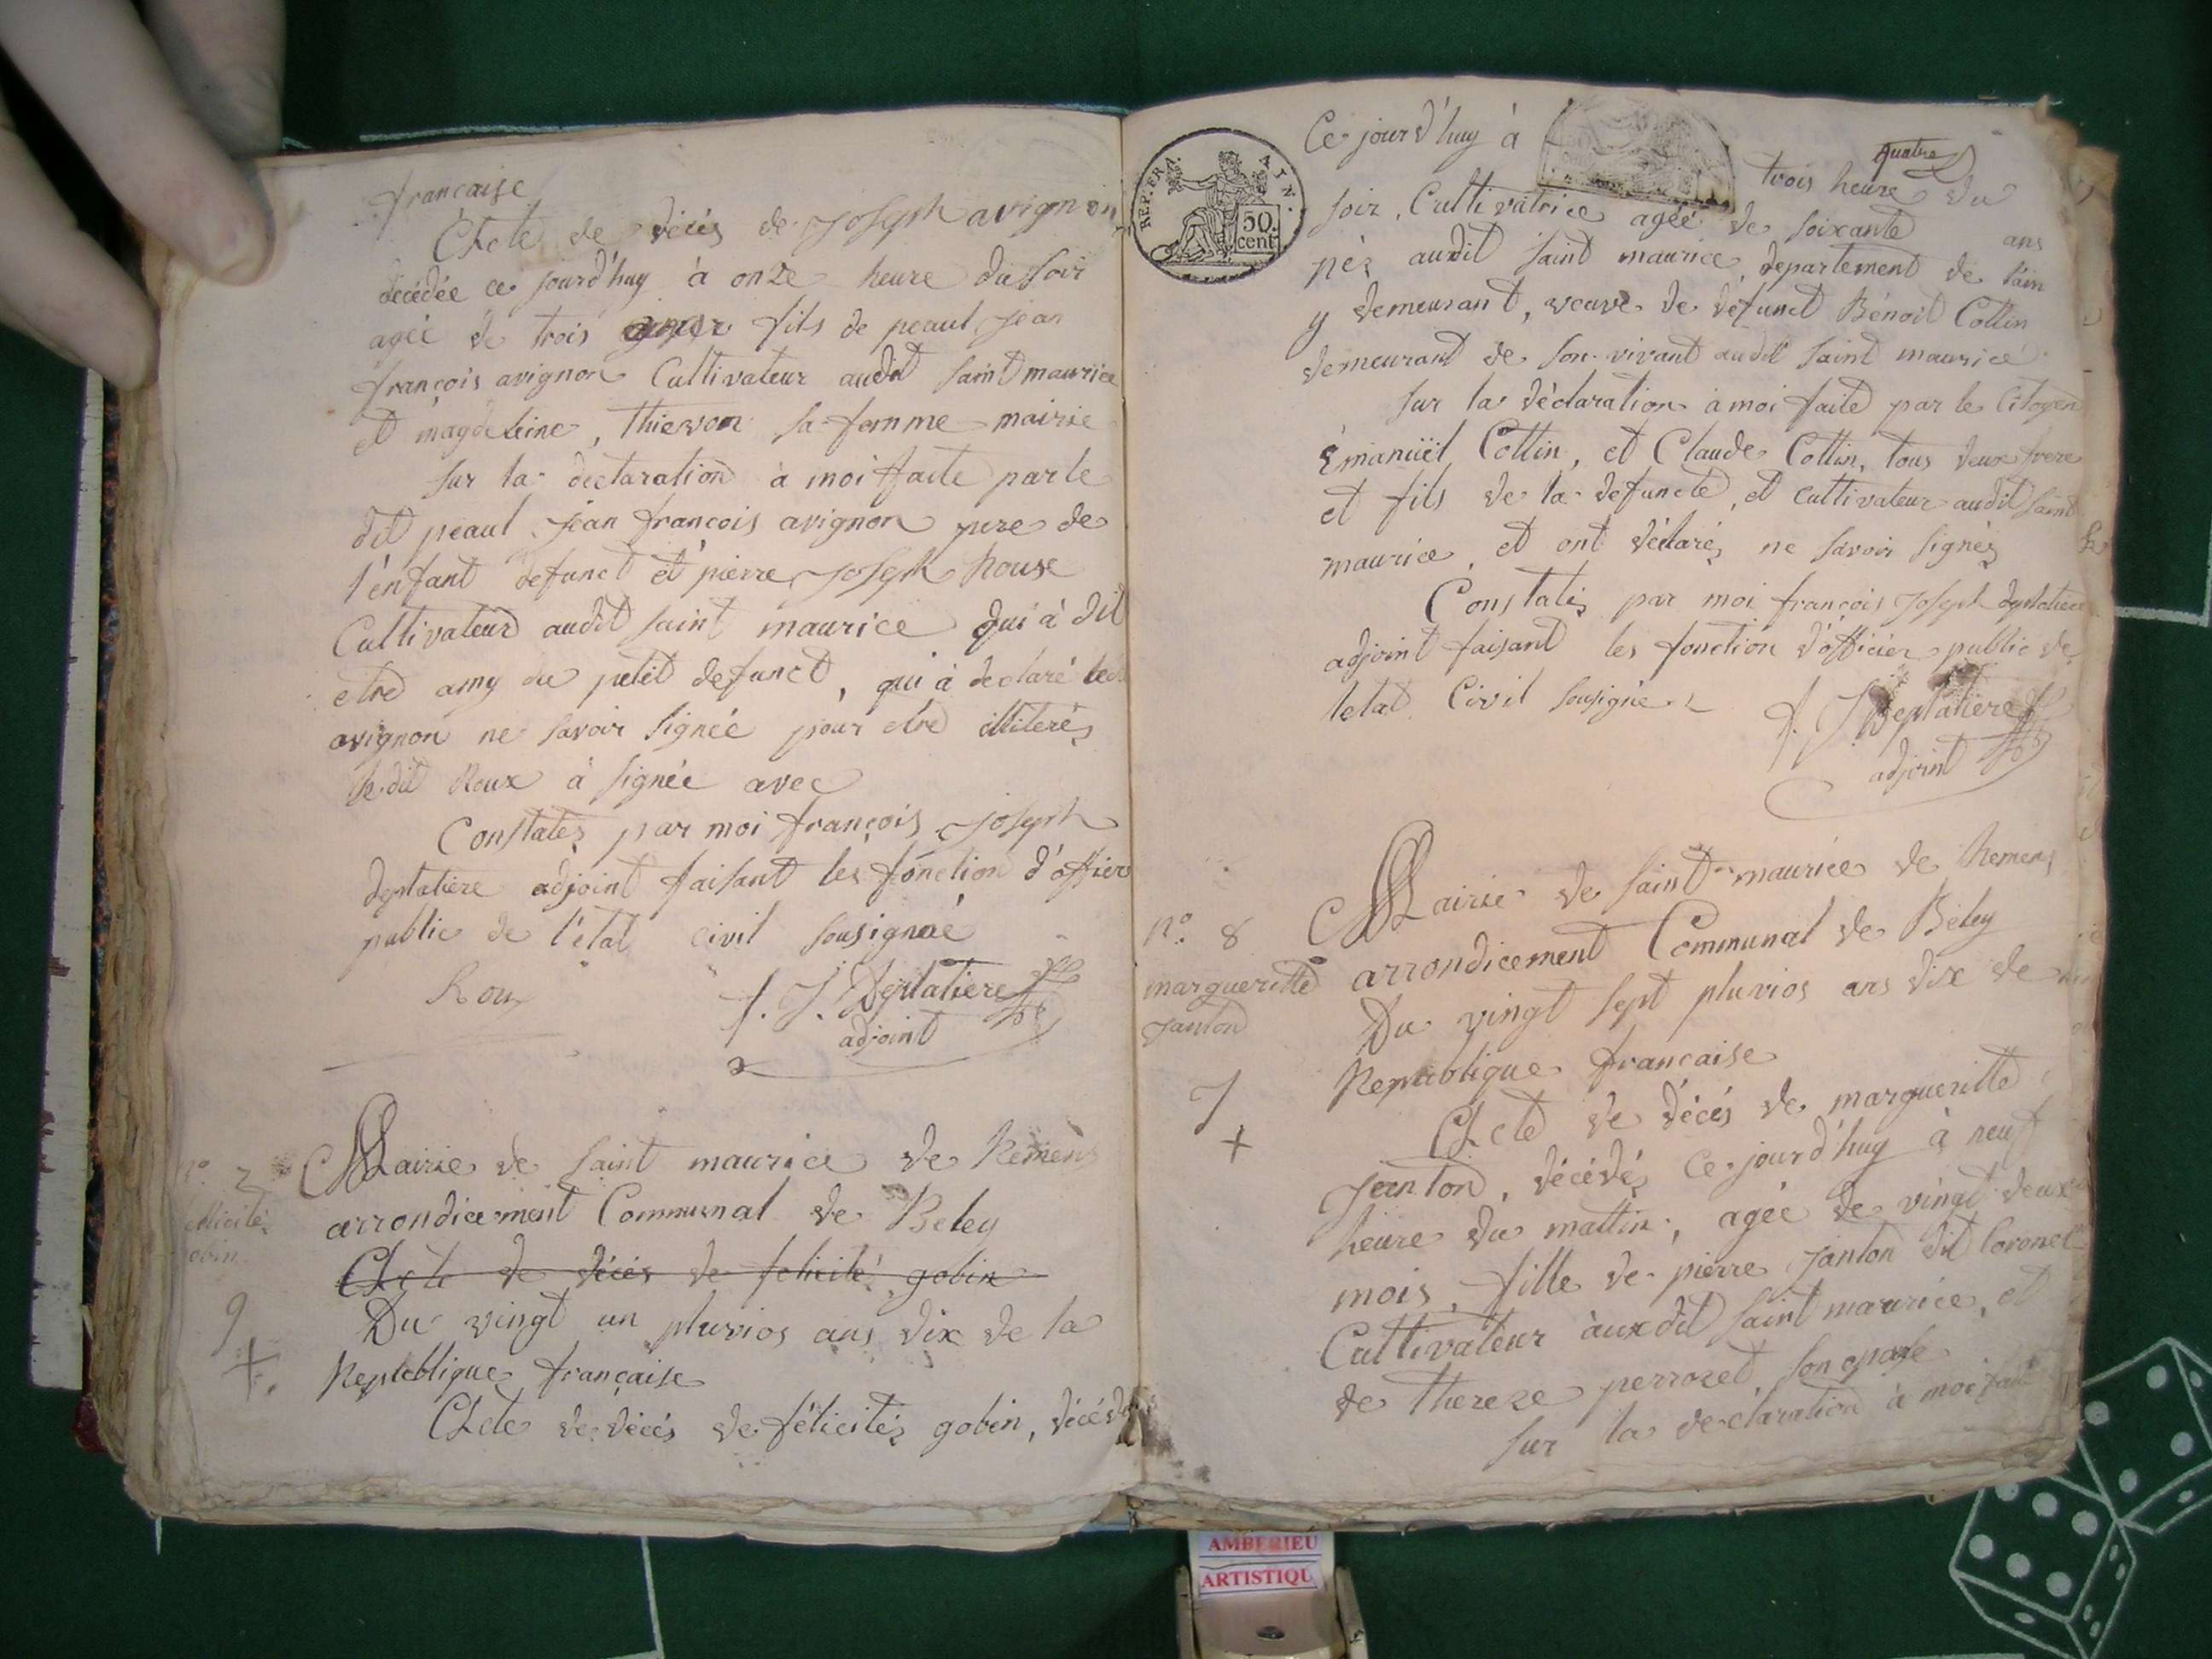 francaise
Acte de décés de Joseph avignon
décédée ce jourd'huy à onze heure du soir
agée de trois fils de peaul jean
françois avignon Cultivateur audit saint maurice
et magdeleine, thievon sa femme mairie
sur la déclaration à moi faite par le
dit peaul jean françois avignon pere de
l'énfant defunct et pierre Joseph Rouse
Cultivateur audit saint maurice qui à dit
etre amy du petit defunct, qui à declaré led
avignon ne savoir signée pour etre illiterés
le dit Roux à signée avec
Constatés par moi françois Joseph
deplatiere adjoint faisant les fonction d'offier
public de l'état civil sousignéé
Roux
f. J. Deplatiere
adjoint
n° 7
felicité
gobin
9
+
Mairie de saint maurice de Remens
arrondicement Communal de Beley
Acte de décés de felicité gobin
Du vingt un pluvios ans dix de la
Republique française
Acte de décés de félicités gobin, décédé
REP. FRA.
AIN.
50
cent
Ce jourd'huy à trois heure du
quatre
soir, Cultivatrice agée de soixante ans
nés audit saint maurice, departement de l'ain
y demeurant, veuve de défunct Bénoit Cottin
demeurant de son vivant audit saint maurice
sur la déclaration à moi faite par le Citoyen
Émanüel Cottin, et Claude Cottin, tous deux frere
et fils de la defuncte, et cultivateur audit saint
maurice, et ont déclarés ne savoir signés
Constatés par moi françois Joseph deplatiere
adjoint faisant les fonction d'officier public de
letat Civil sousigné
f. J. Deplatiere
adjoint
n°. 8
margueritte
Janton
7
+
Mairie de saint maurice de Remens
arrondicement Communal de Beley
Du vingt sept pluvios ans dix de
Republique francaise
Acte de décés de margueritte
Janton, décédés ce jourd'huy à neuf
heure du mattin, agée de vingt deux
mois, fille de pierre Janton dit Coronel
Cultivateur auxdit saint maurice, et
de thereze perrozet, son
sur la declaration à moi fait
AMBERIEU
ARTISTIQU